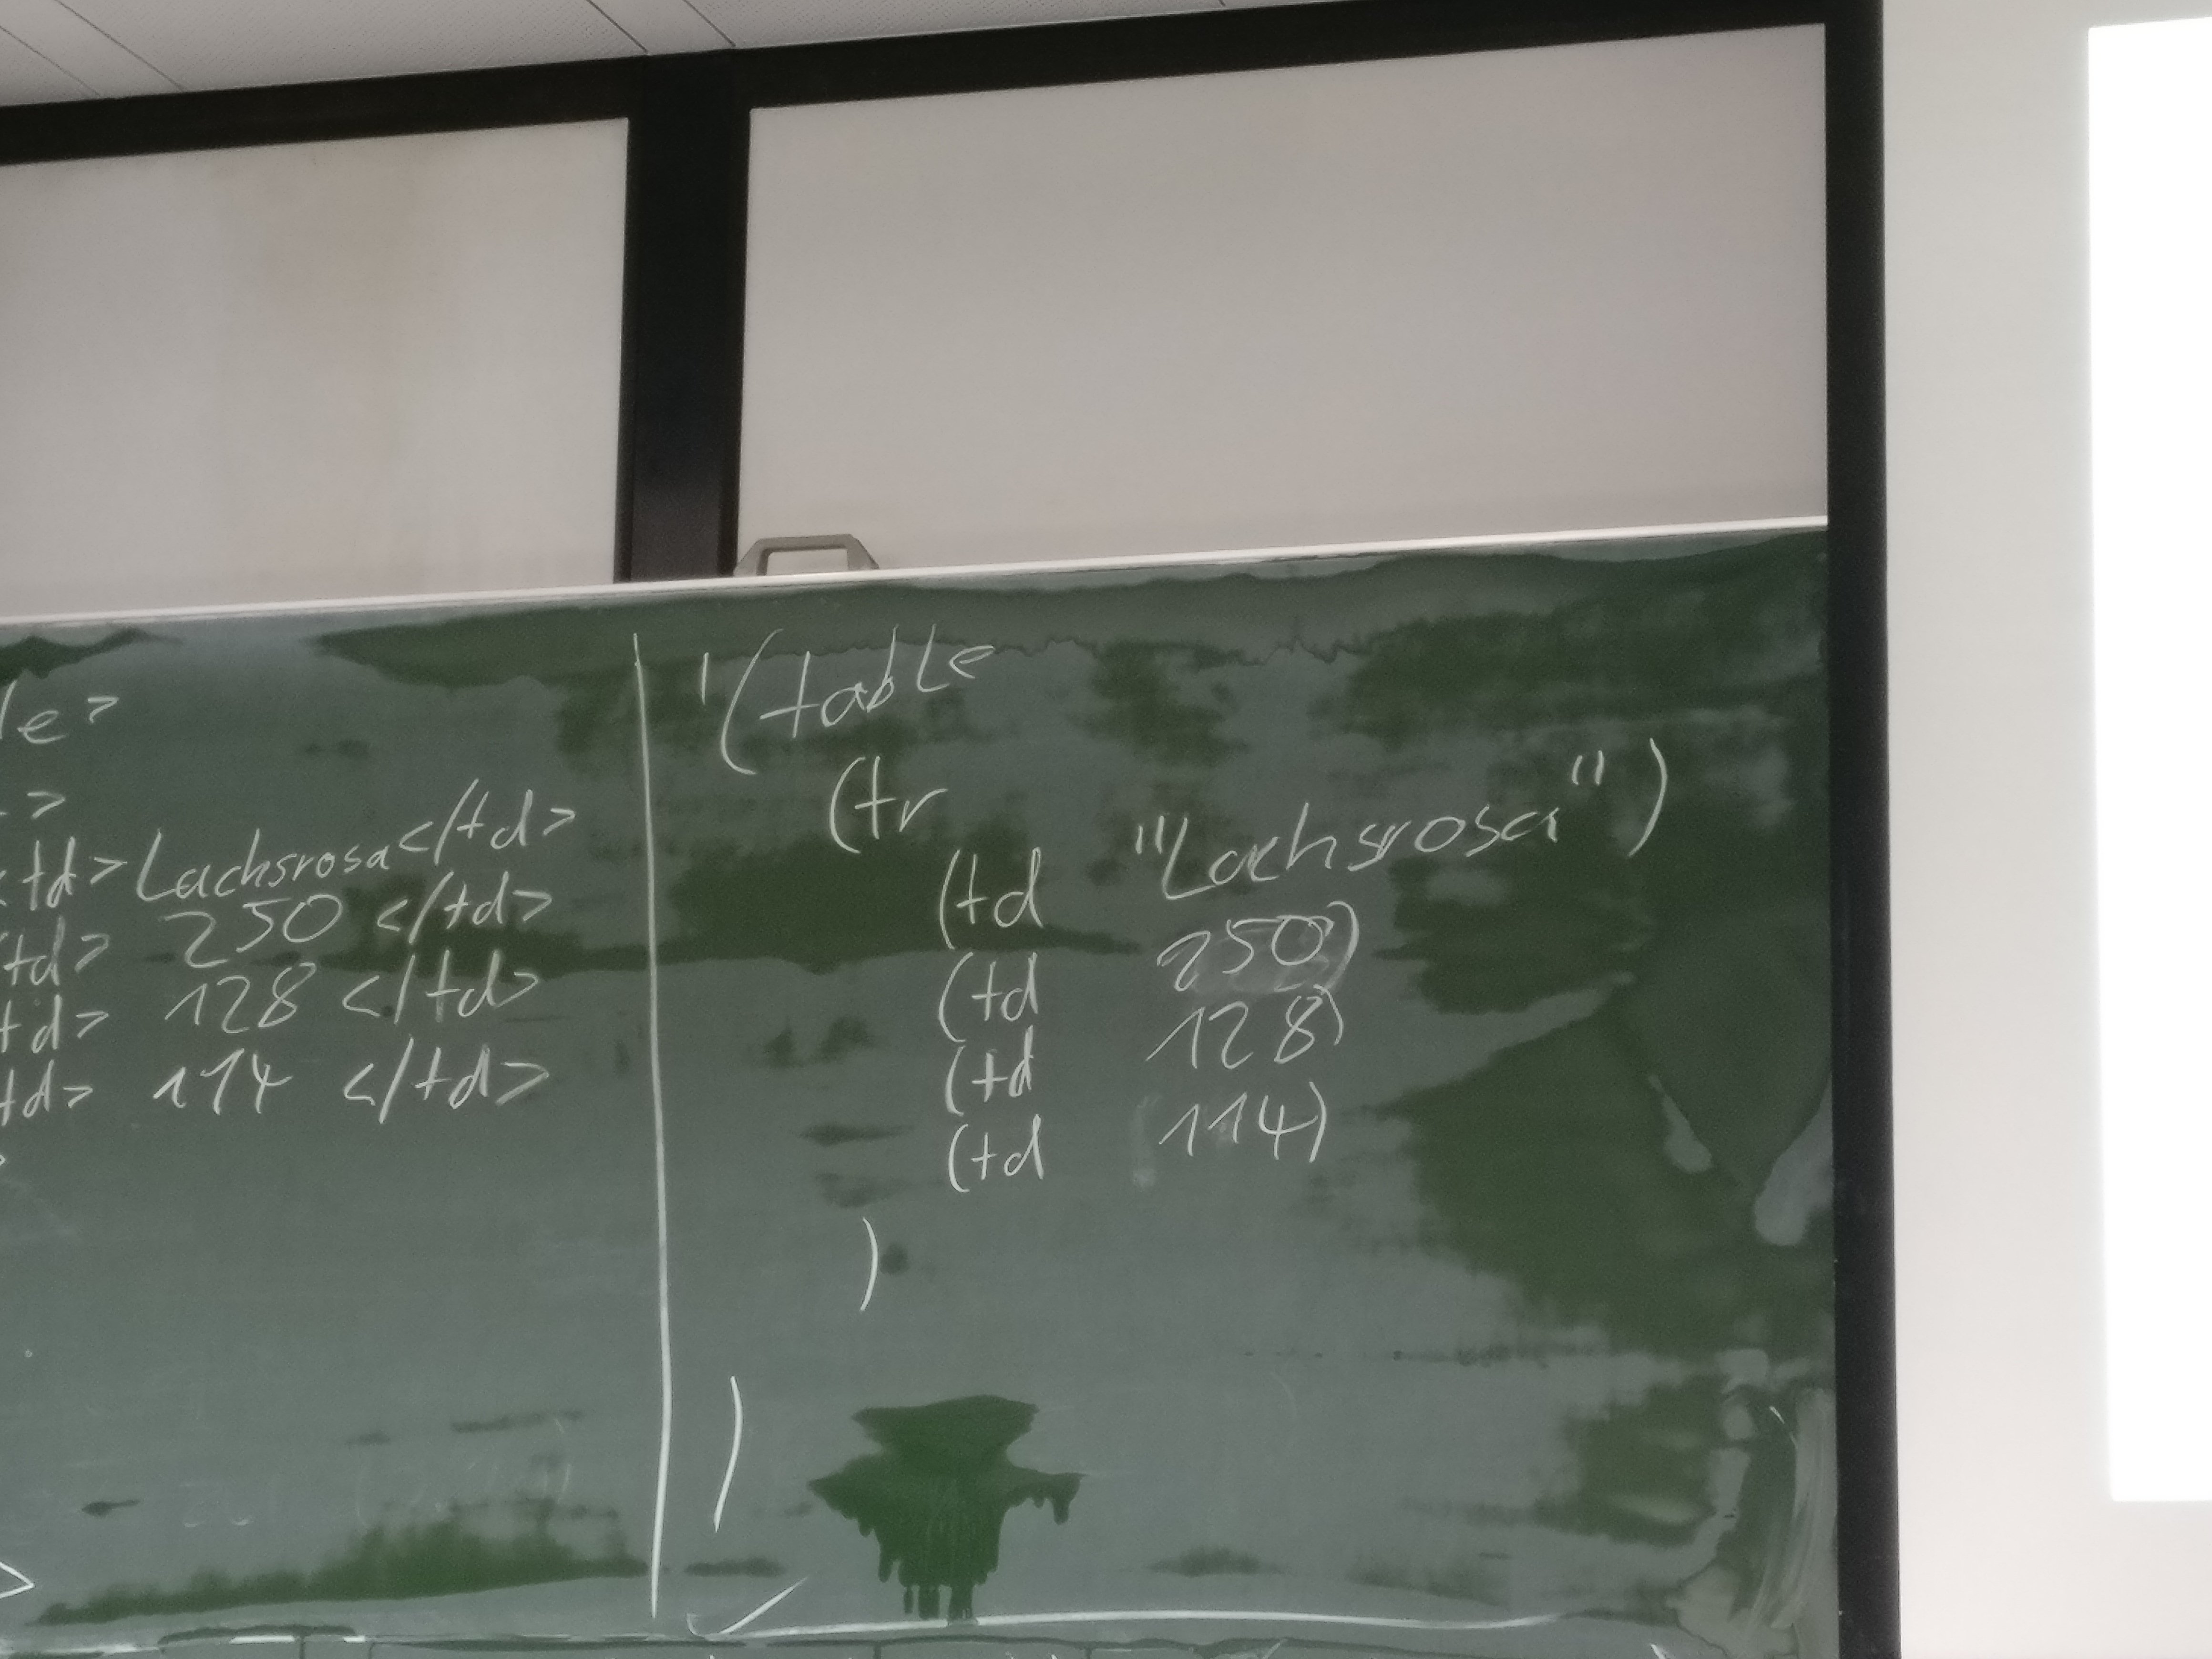 le>
>
<td>Lachsrosa</td>
<td> 250 </td>
td> 128 </td>
td> 114 </td>
>
>
'(table
(tr
(td "Lachsrosa")
(td 250)
(td 128)
(td 114)
)
)